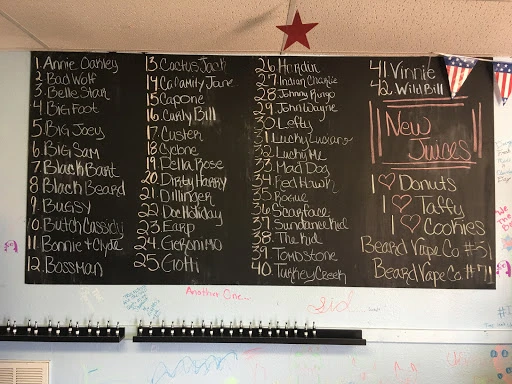 1. Annie Oakley
2 Bad Wolf
3. Belle Starr
4 Big Foot
5. Big Joey
6. Big Sam
7. Black Bart
8 Black Beard
9. Bugsy
10. Butch Cassidy
11. Bonnie + Clyde
12. Bossman
13 Cactus Jack
14 Calamity Jane
15 Capone
16 Curly Bill
17. Custer
18 Cyclone
19 Della Rose
20. Dirty Harry
21. Dillinger
22 Doc Holiday
23 Earp
24. Geronimo
25 Gotti
26. Hondur
27. Indian Charlie
28 Johnny Ringo
29 John Wayne
30 Lefty
31 Lucky Luciano
32 Lucky Me
33 Mad Dog
34 Red Hawk
35 Rogue
36 Scarface
37 Sundance Kid
38. The Kid
39. Tombstone
40 Turkey Creek
41. Vinnie
42. Wild Bill
New
Juices
I ♡ Donuts
I ♡ Taffy
I ♡ Cookies
Beard Vape Co #51
Beard Vape Co #71
Another One